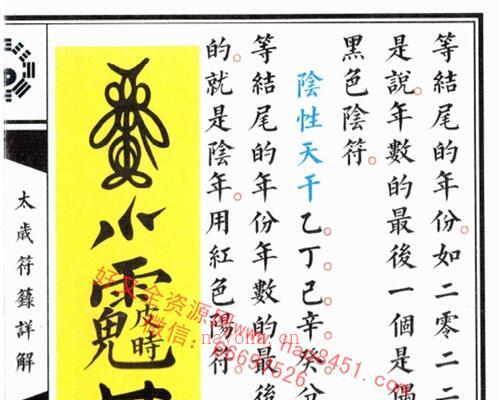 等結尾的年份。如二零二二
是說。年數的最後一個是偶
黑色陰符。
陰性天干乙。丁。己。辛。癸。分
等結尾的年份年數的最後
的。就是陰年。用紅色陽符。
太歲符籙詳解
好又全资源网
微信：
nayona.cn